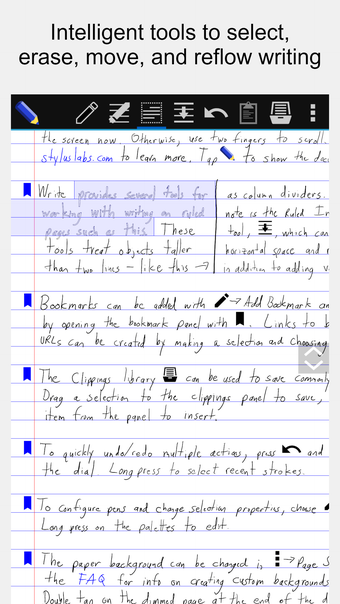 Intelligent tools to select,
erase, move, and reflow writing
the screen now. Otherwise, use two fingers to scroll.
styluslabs.com to learn more. Tap to show the
Write provides several tools for
working with writing on ruled
pages such as this. These
tools treat objects taller
than two lines - like this →
as column dividers.
note is the Ruled
tool, , which can
horizontal space and
in addition to adding
Bookmarks can be added with → Add Bookmark
by opening the bookmark panel with . Links to
URLs can be created by making a selection and choosing
The Clippings library can be used to save
Drag a selection to the clippings panel to save,
item from the panel to insert.
To quickly undo/redo multiple actions, press and
the dial. Long press to select recent strokes.
To configure pens and change selection properties, choose
Long press on the palettes to edit.
The paper background can be changed in → Page
the FAQ for info on creating custom backgrounds
Double tap on the dimmed page at the end of the